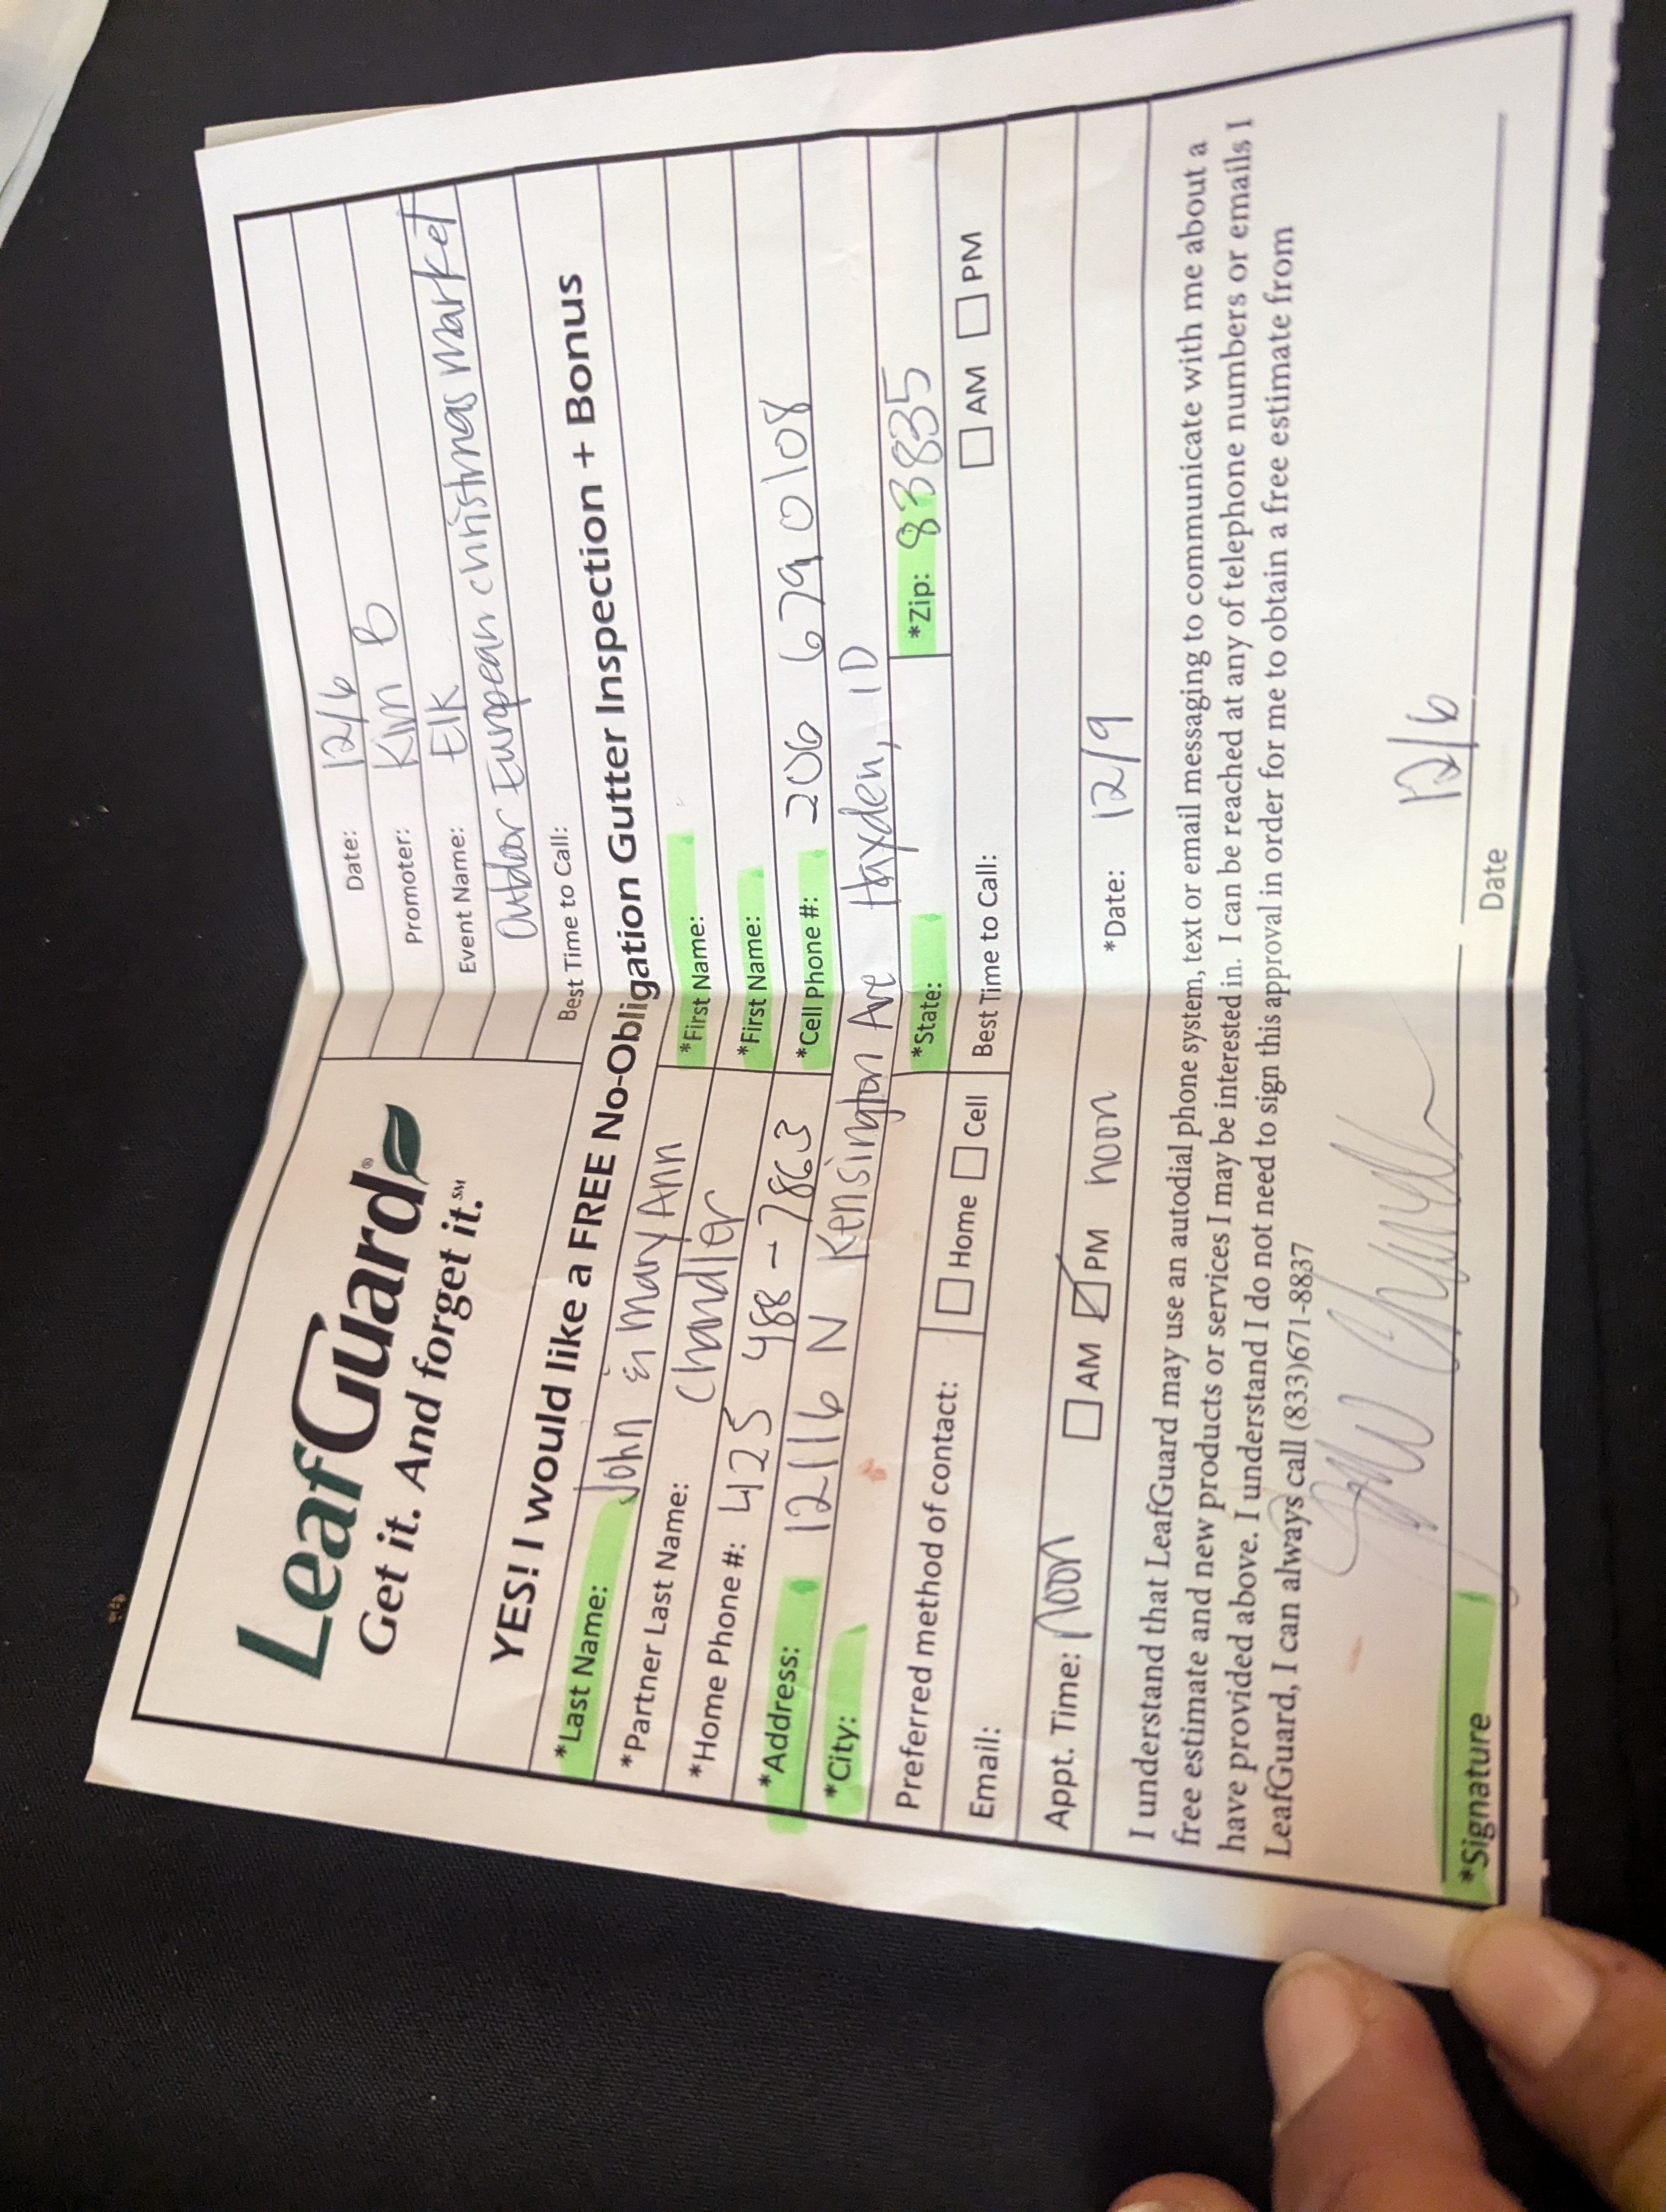 LeafGuard®
Get it. And forget it.℠
Date: 12/6
Promoter: Kim B
Event Name: Elk
Outdoor European christmas market
Best Time to Call:
YES! I would like a FREE No-Obligation Gutter Inspection + Bonus
*Last Name: John & Mary Ann *First Name:
*Partner Last Name: Chandler *First Name:
*Home Phone #: 425 488-7863 *Cell Phone #: 206 679 0108
*Address: 12116 N Kensington Ave Hayden, ID
*City: *State: *Zip: 83835
Preferred method of contact: ☐ Home ☐ Cell Best Time to Call: ☐ AM ☐ PM
Email:
Appt. Time: noon ☐ AM ☑ PM noon *Date: 12/9
I understand that LeafGuard may use an autodial phone system, text or email messaging to communicate with me about a
free estimate and new products or services I may be interested in. I can be reached at any of telephone numbers or emails I
have provided above. I understand I do not need to sign this approval in order for me to obtain a free estimate from
LeafGuard, I can always call (833)671-8837
12/6
*Signature Date